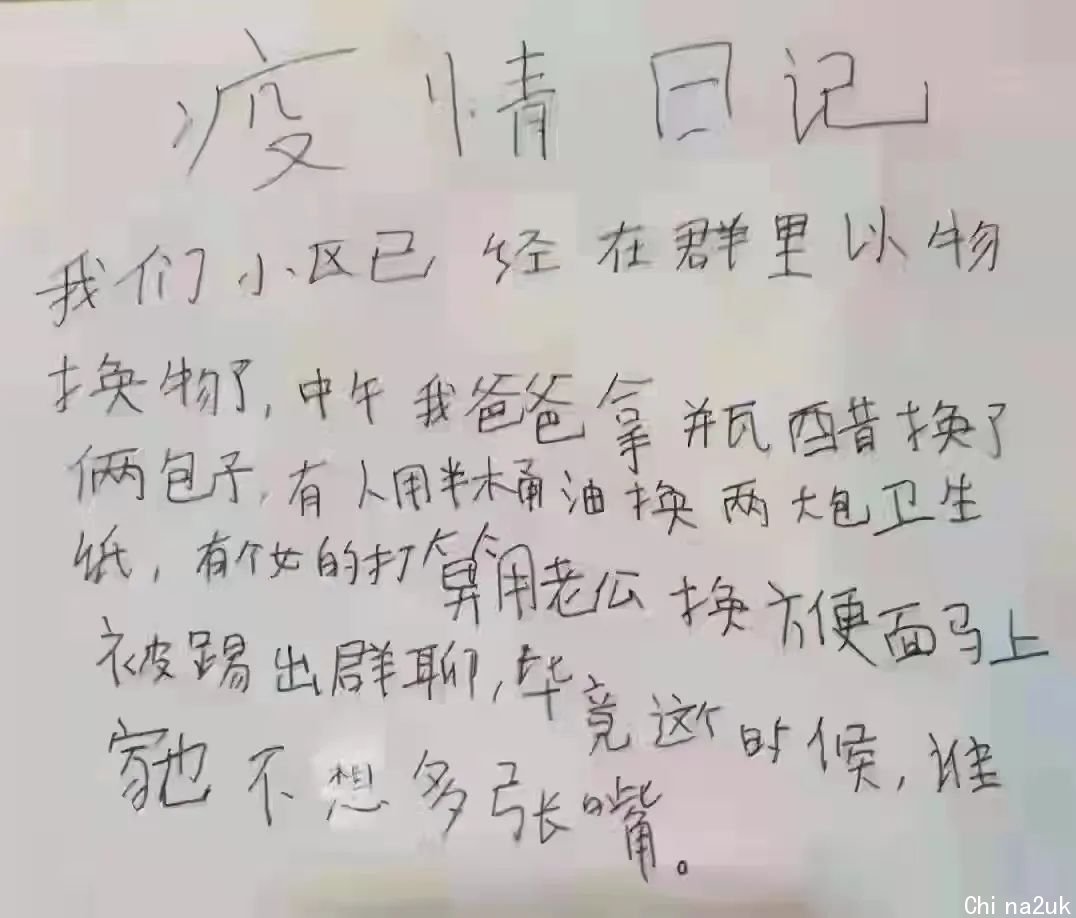 疫情日记
我们小区已经在群里以物
换物了,中午我爸爸拿瓶醋换了
俩包子,有人用半桶油换两大包卫生
纸,有个女的打算用老公换方便面马上
被踢出群聊,毕竟这个时候,谁
家也不想多张嘴。
Chi na2uk